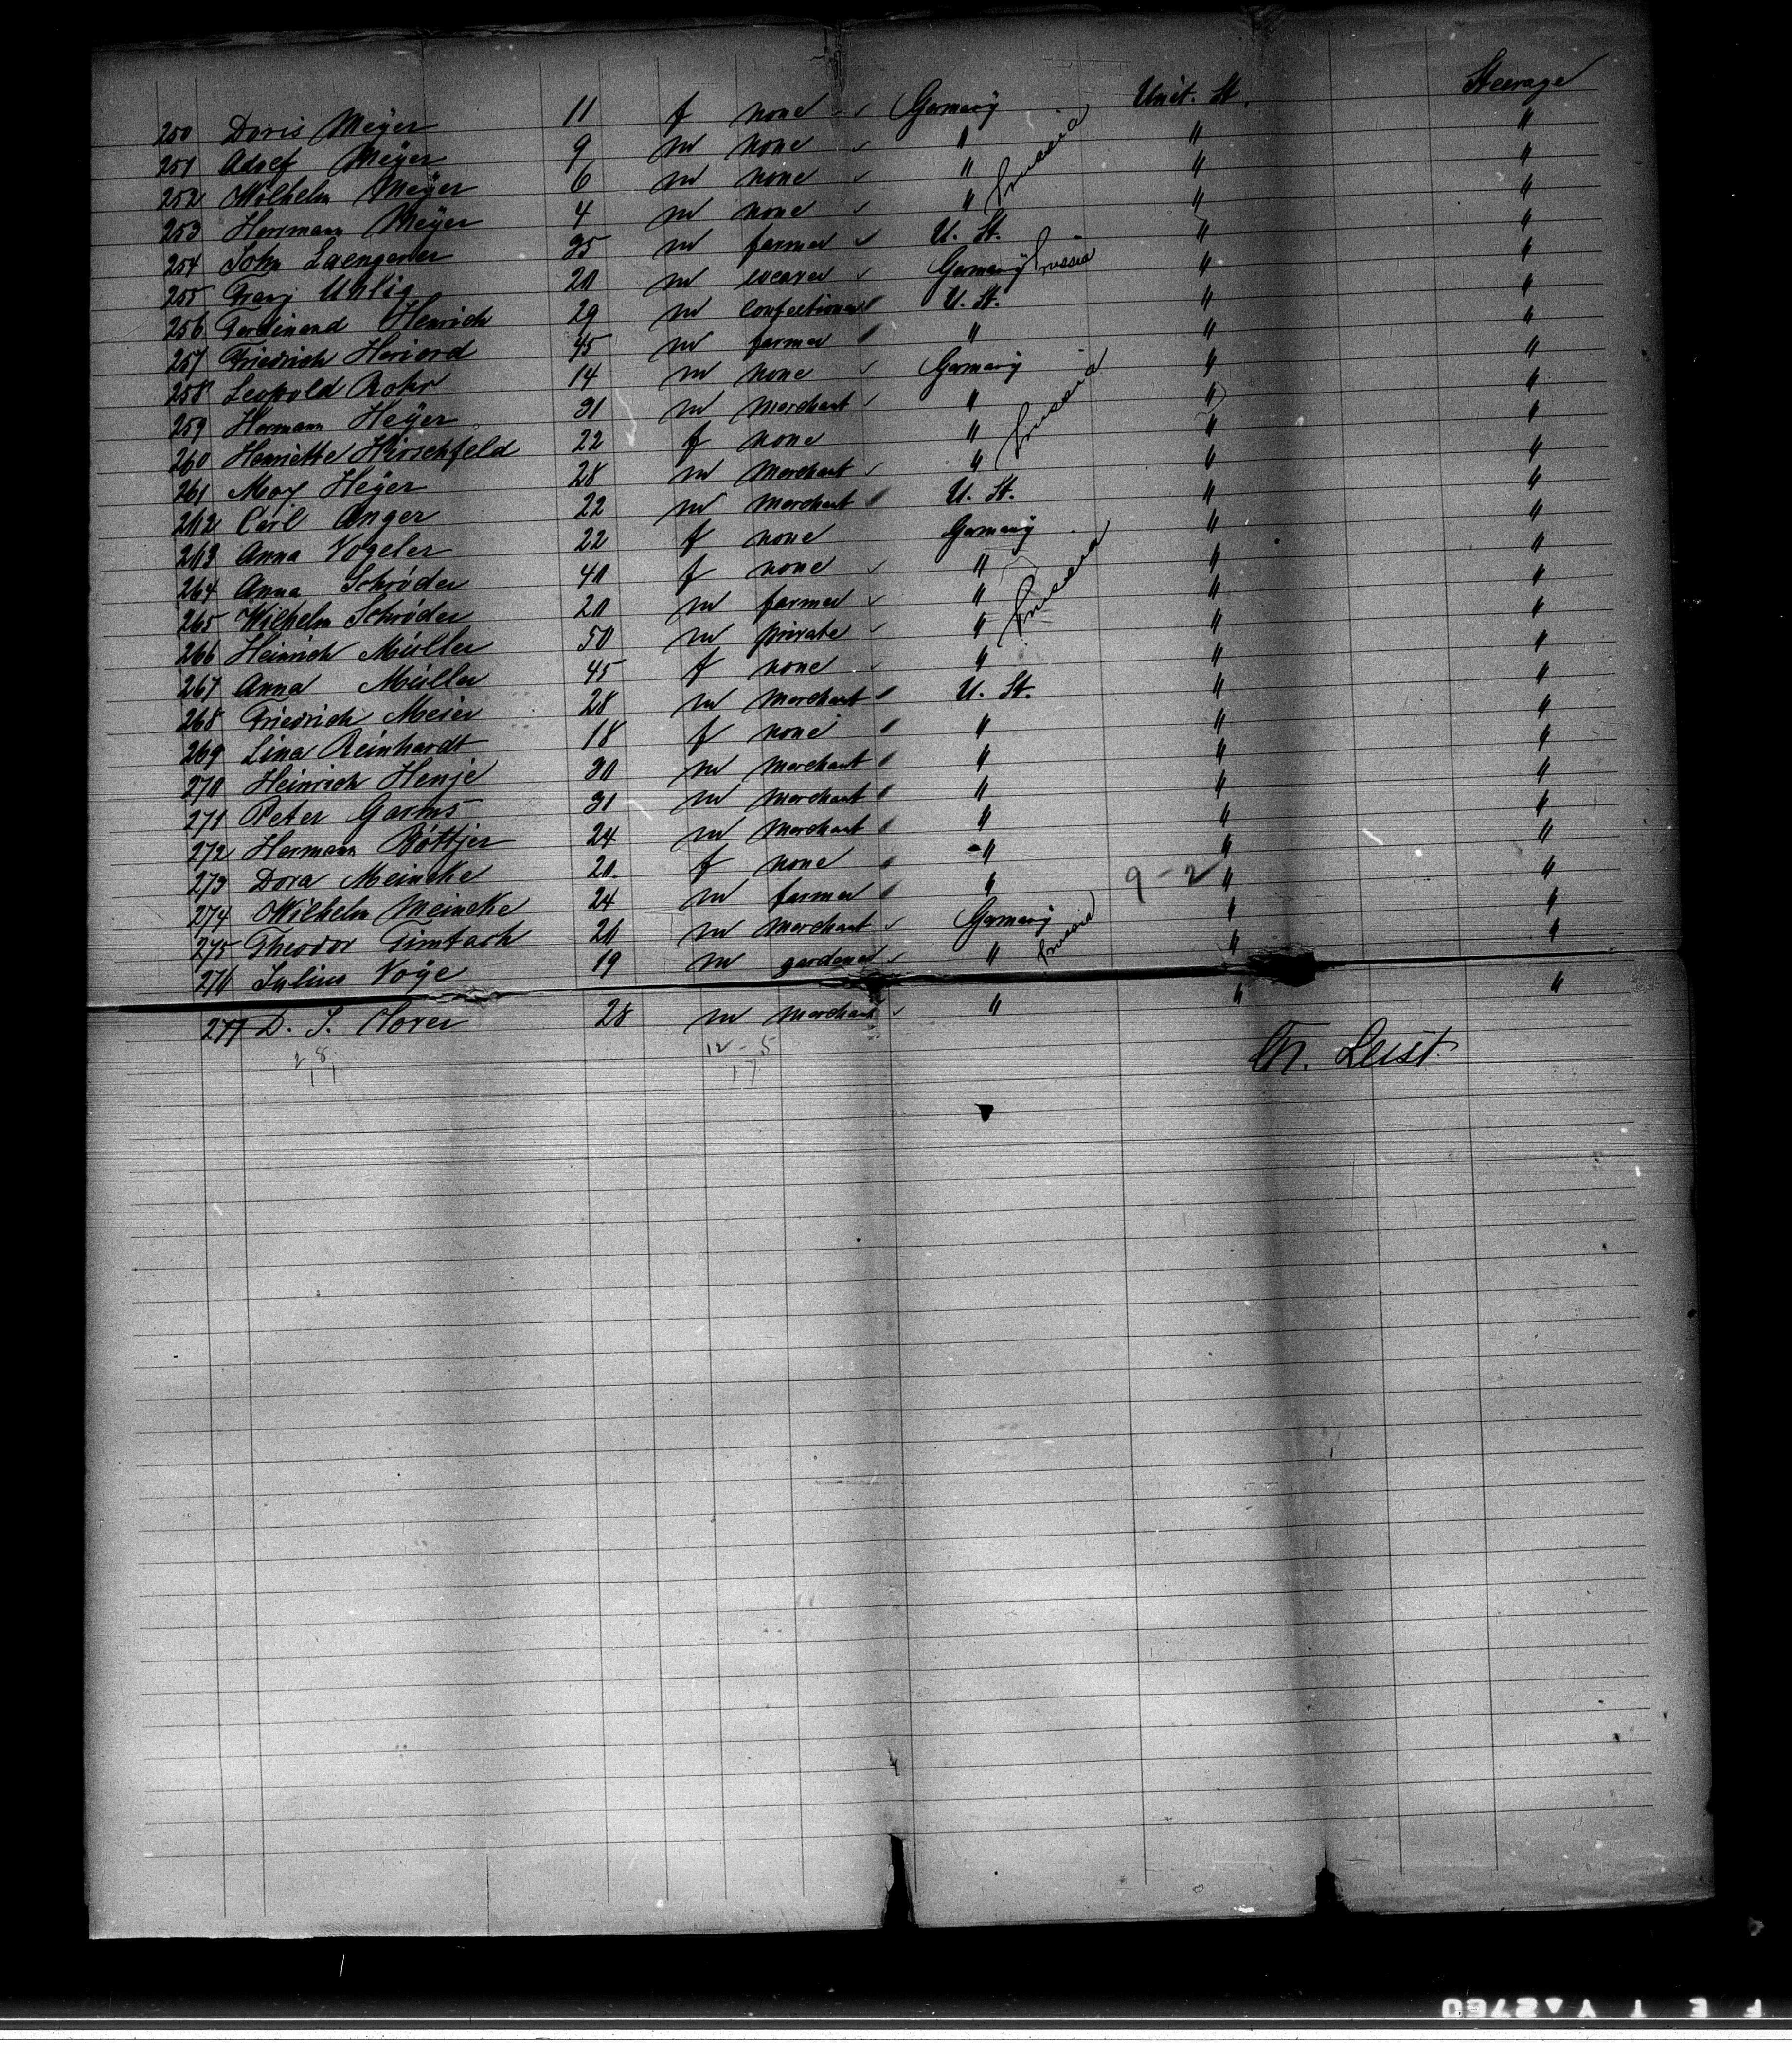 250 Doris Meÿer 11 f none Germanÿ Unit. St. Steerage
251 Adolf Meÿer 9 m none " " "
252 Wilhelm Meÿer 6 m none " Prussia " "
253 Herrmann Meÿer 4 m none " " "
254 John Laengerer 35 m farmer U. St. " "
255 Franz Uhlig 20 m weaver Germanÿ Prussia " "
256 Ferdinand Henrich 29 m confectioner U. St. " "
257 Friedrich Heriord 45 m farmer " " "
258 Leopold Rohr 14 m none Germanÿ " "
259 Hermann Heÿer 31 m merchant " Prussia " "
260 Henriette Hirschfeld 22 f none " " "
261 Max Heÿer 28 m merchant " " "
262 Carl Unger 22 m merchant U. St. " "
263 Anna Vogeler 22 f none Germanÿ " "
264 Anna Schröder 40 f none " " "
265 Wilhelm Schröder 20 m farmer " Prussia " "
266 Heinrich Müller 50 m private " " "
267 Anna Müller 45 f none " " "
268 Friedrich Meier 28 m merchant U. St. " "
269 Lina Reinhardt 18 f none " " "
270 Heinrich Henje 30 m merchant " " "
271 Peter Garms 31 m merchant " " "
272 Hermann Böttjer 24 m merchant " " "
273 Dora Meincke 20 f none " " "
274 Wilhelm Meincke 24 m farmer " 9-2 " "
275 Theodor 20 m merchant Germanÿ Prussia " "
276 Julius Voÿe 19 m gardener " " "
277 D. J. 28 m merchant " " "
28 12-5
11 17
Leist.
F E T Y 2760